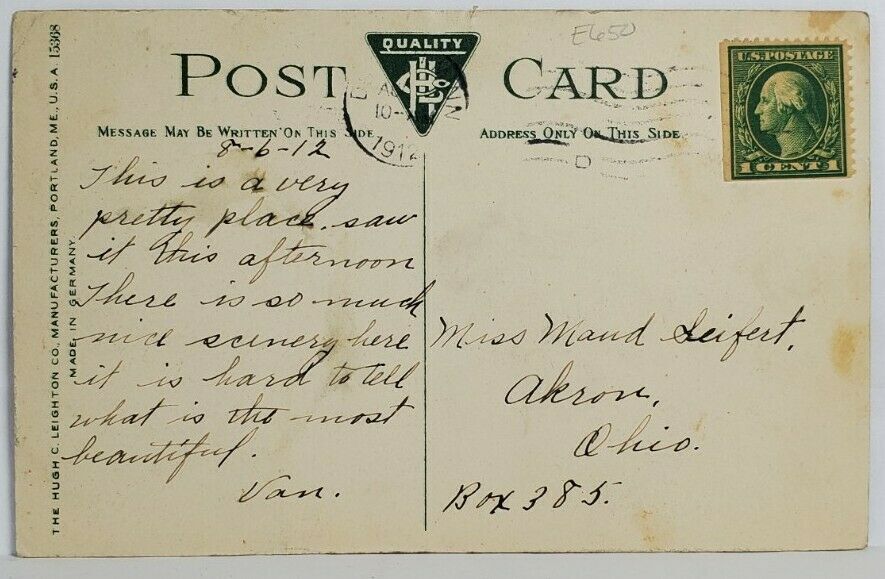 E650
QUALITY
POST CARD
U.S. POSTAGE
1 CENT 1
10-
1912
D
MESSAGE MAY BE WRITTEN ON THIS SIDE
ADDRESS ONLY ON THIS SIDE
THE HUGH C. LEIGHTON CO., MANUFACTURERS, PORTLAND, ME., U.S.A. 15368
MADE IN GERMANY.
8-6-12
This is a very
pretty place. saw
it this afternoon
There is so much
nice scenery here
it is hard to tell
what is the most
beautiful.
Van.
Miss Maud Seifert,
Akron,
Ohio.
Box 385.